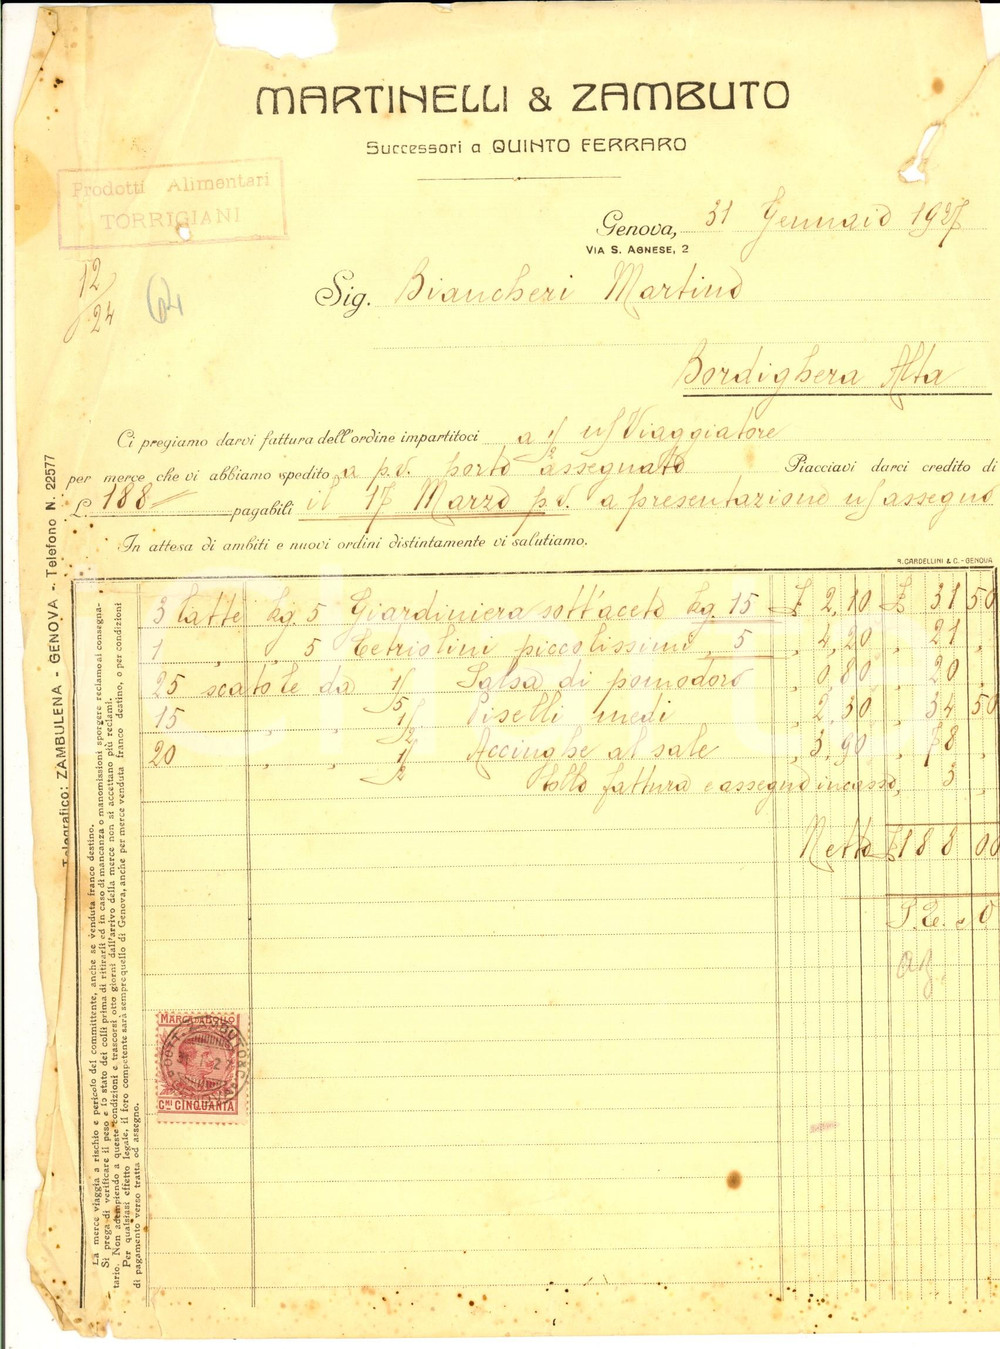 MARTINELLI & ZAMBUTO
Successori a QUINTO FERRARO
Prodotti Alimentari
TORRIGIANI
Genova, 31 Gennaio 1927
VIA S. AGNESE, 2
12/24
64
Sig. Biancheri Martino
Bordighera Alta
Ci pregiamo darvi fattura dell'ordine impartitoci a 1/2 n/ Viaggiatore
per merce che vi abbiamo spedito a p.v. porto assegnato Piacciavi darci credito di
L. 188 pagabili il 17 Marzo p.v. a presentazione n/ assegno
In attesa di ambiti e nuovi ordini distintamente vi salutiamo.
R. CARDELLINI & C. - GENOVA
3 latte kg. 5 Giardiniera sott'aceto kg. 15 £ 2,10 £ 31 50
1 " " 5 Cetriolini piccolissimi " 5 " 4,20 " 21 "
25 scatole da 1/5 Salsa di pomodoro " 0,80 " 20 "
15 " " 1/2 Piselli medi " 2,30 " 34 50
20 " " 1/2 Acciughe al sale " 3,90 " 78 "
Bollo fattura e assegno incasso " 3 "
Netto £ 188 00
S.E. e O
Telegrafico: ZAMBULENA - GENOVA - Telefono N. 22577
La merce viaggia a rischio e pericolo del committente, anche se venduta franco destino.
Si prega di verificare il peso e lo stato dei colli prima di ritirarli ed in caso di mancanza o manomissioni sporgere reclamo al consegna-
tario. Non adempiendo a queste condizioni e trascorsi otto giorni dall'arrivo della merce non si accettano più reclami.
Per qualsiasi effetto legale, il foro competente sarà sempre quello di Genova, anche per merce venduta franco destino, o per condizioni
di pagamento verso tratta od assegno.
MARCA DA BOLLO
Cmi CINQUANTA